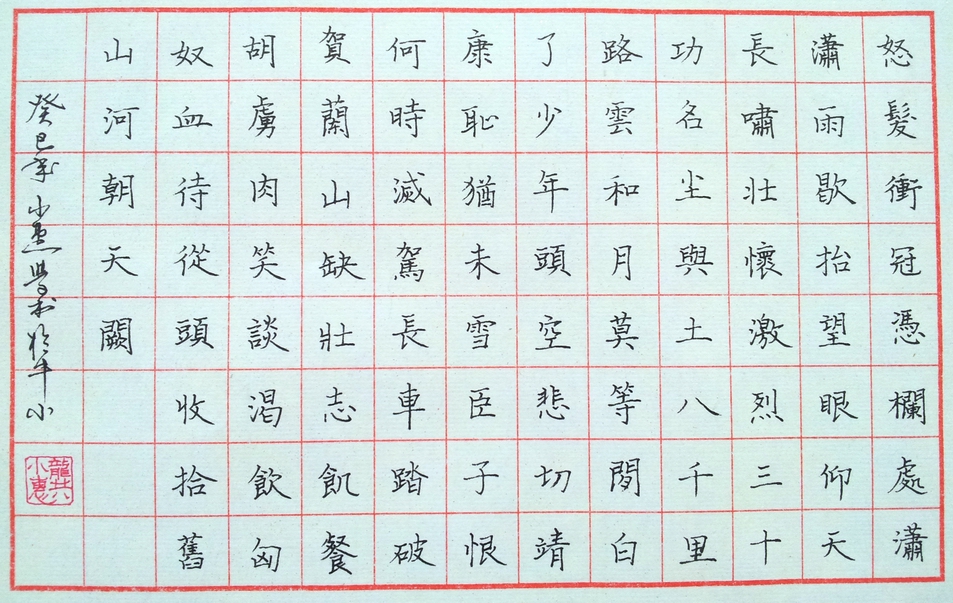 怒髮衝冠憑欄處瀟
瀟雨歇抬望眼仰天
長嘯壯懷激烈三十
功名尘與土八千里
路雲和月莫等閒白
了少年頭空悲切靖
康恥猶未雪臣子恨
何時滅駕長車踏破
賀蘭山缺壯志飢餐
胡虜肉笑談渴飲匈
奴血待從頭收拾舊
山河朝天闕
癸巳年小惠學書於牛小
龍共小惠